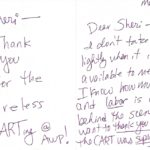 Sheri —
Thank
you
for the
reless
CARTing @ AWP!
Dear Sheri —
I don't take
lightly when it
available to me
I know how mu
and labor is
behind the scene
want to thank you
the CART was